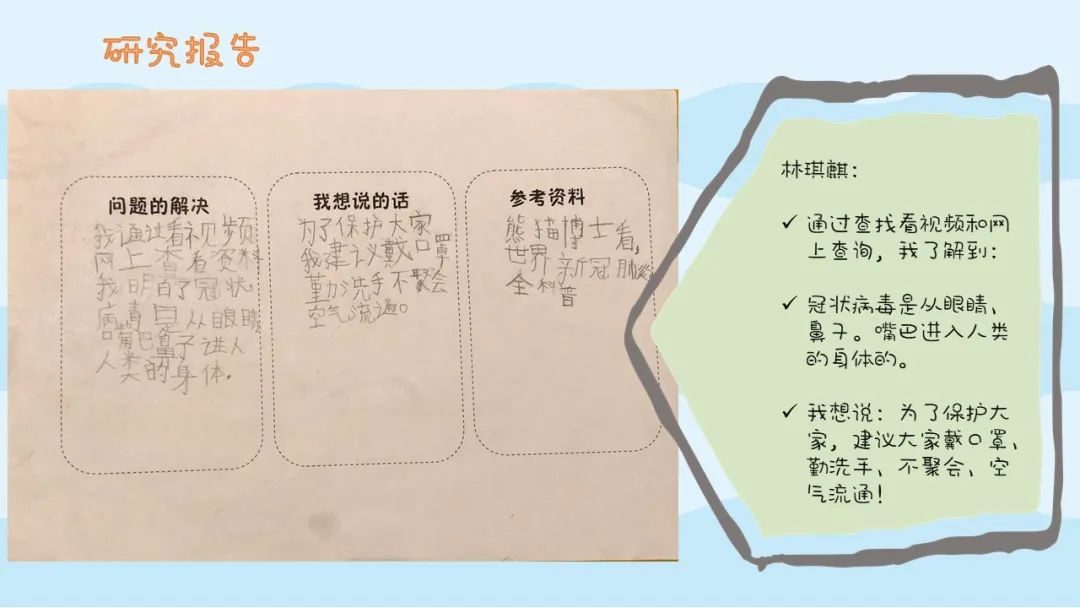 研究报告
问题的解决
我通过看视频
网上查看资料
我明白了冠状
病毒是从眼睛
口嘴巴鼻子进入
人类的身体.
我想说的话
为了保护大家
我建议戴口罩
勤洗手不聚会
空气流通。
参考资料
熊猫博士看,
世界新冠肺
全科普
林琪麒：
✓ 通过查找看视频和网
上查询，我了解到：
✓ 冠状病毒是从眼睛、
鼻子。嘴巴进入人类
的身体的。
✓ 我想说：为了保护大
家，建议大家戴口罩、
勤洗手、不聚会、空
气流通！